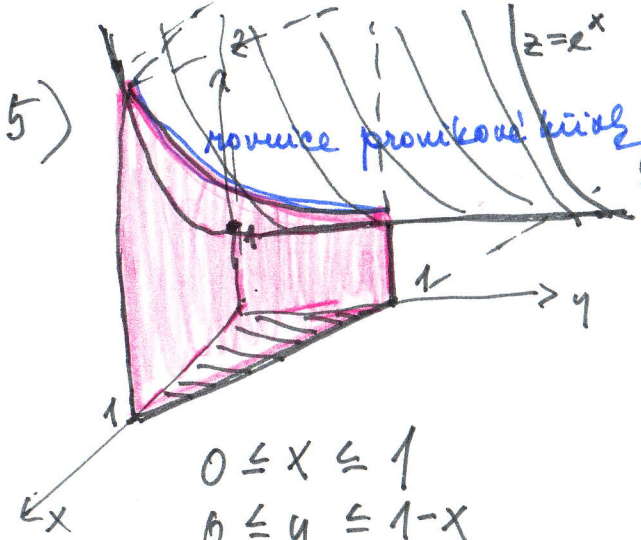 5)
z
z=e^x
rovnice pronikové křivky
1
1
y
1
x
0 ≤ x ≤ 1
0 ≤ y ≤ 1-x